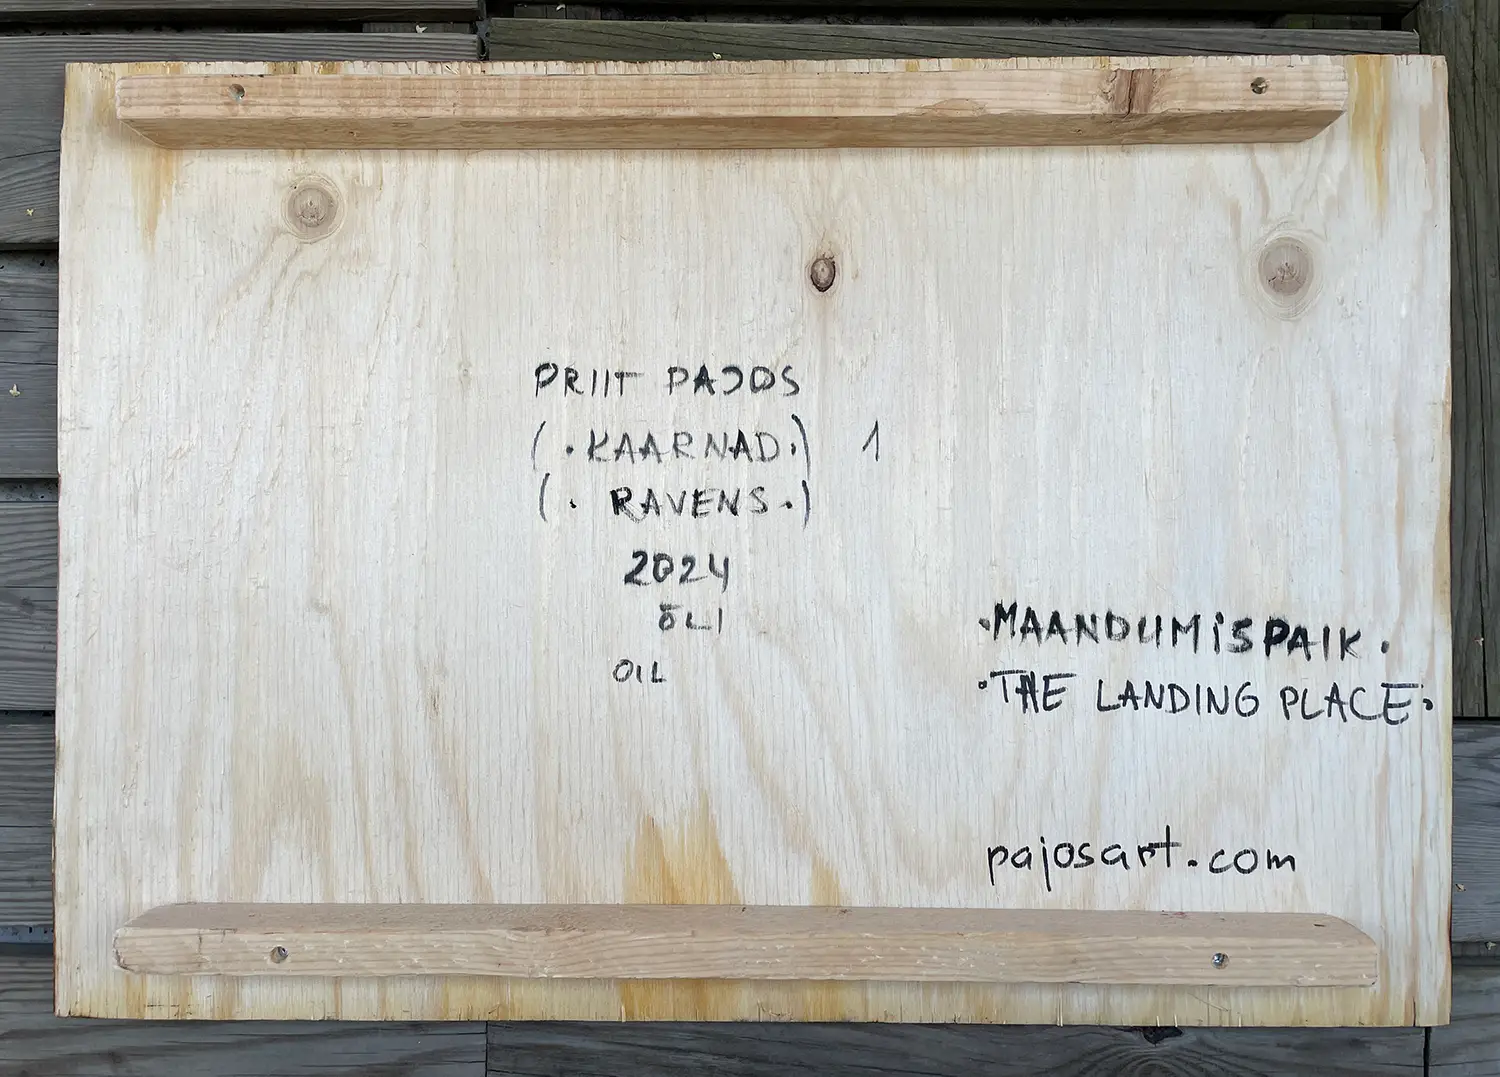 PRIIT PAJOS
(. KAARNAD.) 1
(. RAVENS .)
2024
ÕLI
OIL
.MAANDUMiSPAIK.
.THE LANDING PLACE.
pajosart.com